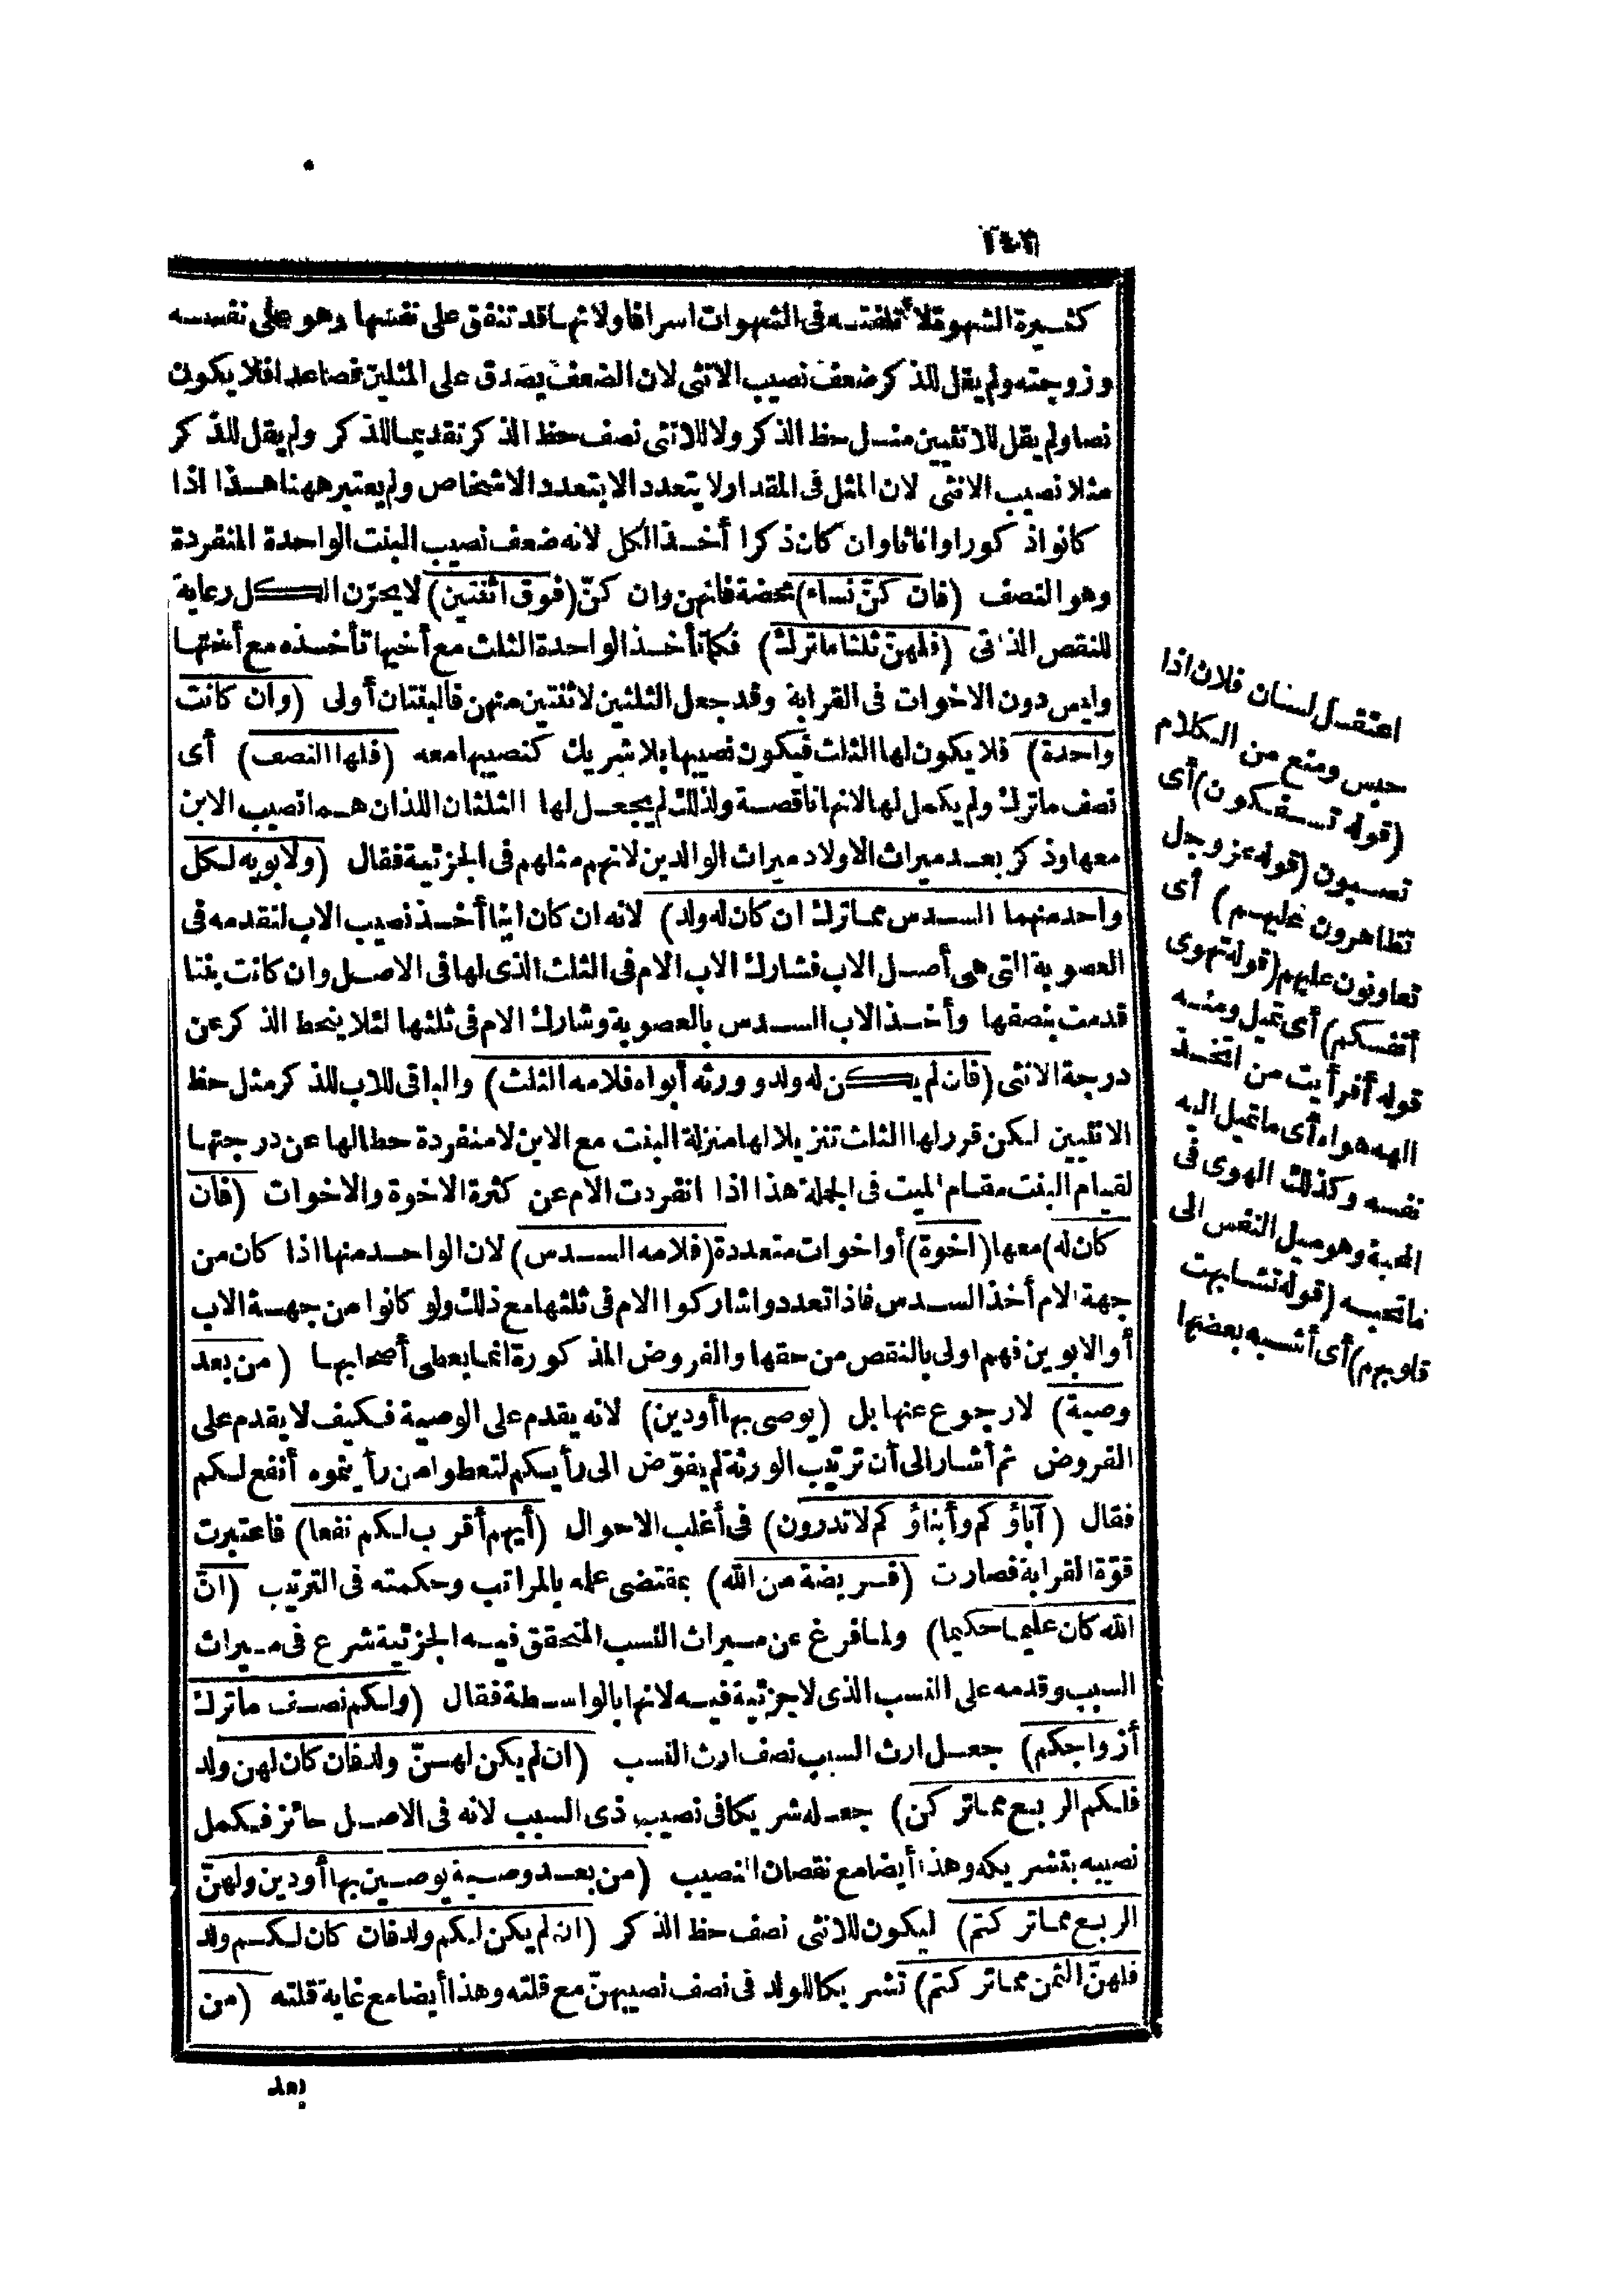 كثيرة الشهوة فلا تلفته فى الشهوات اسرافا ولانها قد تنفق على نفسها وهو على نفسه
وزوجته ولم يقل للذكر ضعف نصيب الانثى لان الضعف يصدق على المثلين فصاعدا فلا يكون
نصا ولم يقل للانثيين مثل حظ الذكر ولا للانثى نصف حظ الذكر تقديما للذكر ولم يقل للذكر
مثلا نصيب الانثى لان المثل فى المقدار ولا يتعدد الا بتعدد الاشخاص ولم يعتبر ههنا هذا اذا
كانوا ذكورا واناثا وان كان ذكرا أخذ الكل لانه ضعف نصيب البنت الواحدة المنفردة
وهو النصف (فان كنّ نساء) محضة فانهن وان كنّ (فوق اثنتين) لا يحزن الكل رعاية
للنقص الذاتى (فلهنّ ثلثا ماترك) فكما تأخذ الواحدة الثلث مع أخيها تأخذه مع أختها
وليس دون الاخوات فى القرابة وقد جعل الثلثين لاثنتين منهن فالبنتان أولى (وان كانت
واحدة) فلا يكون لها الثلث فيكون نصيبها بلا شريك كنصيبها معه (فلها النصف) أى
نصف ماترك ولم يكمل لها لانها ناقصة ولذلك لم يجعل لها الثلثان اللذان هما نصيب الابن
معها وذكر بعد ميراث الاولاد ميراث الوالدين لانهم مثلهم فى الجزئية فقال (ولابويه لكل
واحد منهما السدس مما ترك ان كان له ولد) لانه ان كان ابنا أخذ نصيب الاب لتقدمه فى
العصوبة التى هى أصل الاب فشارك الاب الام فى الثلث الذى لها فى الاصل وان كانت بنتا
قدمت بنصفها وأخذ الاب السدس بالعصوبة وشارك الام فى ثلثها لئلا ينحط الذكر عن
درجة الانثى (فان لم يكن له ولد وورثه أبواه فلامه الثلث) والباقى للاب للذكر مثل حظ
الانثيين لكن قرر لها الثلث تنزيلا لها منزلة البنت مع الابن لا منفردة حطا لها عن درجتها
لقيام البنت مقام الميت فى الجملة هذا اذا انفردت الام عن كثرة الاخوة والاخوات (فان
كان له) معها (اخوة) أو اخوات متعددة (فلامه السدس) لان الواحد منها اذا كان من
جهة الام أخذ السدس فاذا تعددوا شاركوا الام فى ثلثها مع ذلك ولو كانوا من جهة الاب
أو الابوين فهم اولى بالنقص من حقها والفروض المذكورة انما يعطى أصحابها (من بعد
وصية) لا رجوع عنها بل (يوصى بها أودين) لانه يقدم على الوصية فكيف لا يقدم على
الفروض ثم أشار الى أن ترتيب الورثة لم يفوّض الى رأيكم لتعطوا من رأيتموه أنفع لكم
فقال (آباؤكم وأبناؤكم لاتدرون) فى أغلب الاحوال (أيهم أقرب لكم نفعا) فاعتبرت
قوّة القرابة فصارت (فريضة من الله) بمقتضى علمه بالمراتب وحكمته فى الترتيب (انّ
الله كان عليما حكيما) ولما فرغ عن ميراث النسب المتحقق فيه الجزئية شرع فى ميراث
السبب وقدمه على النسب الذى لاجزئية فيه لانها بالواسطة فقال (ولكم نصف ماترك
أزواجكم) جعل ارث السبب نصف ارث النسب (ان لم يكن لهنّ ولد فان كان لهن ولد
فلكم الربع مما تركن) جعله شريكا فى نصيب ذى السبب لانه فى الاصل حائز فيكمل
نصيبه بتشريكه وهذا أيضا مع نقصان النصيب (من بعد وصية يوصين بها أودين ولهنّ
الربع مما تركتم) ليكون للانثى نصف حظ الذكر (ان لم يكن لكم ولد فان كان لكم ولد
فلهنّ الثمن مما تركتم) تشريكا للولد فى نصف نصيبهنّ مع قلته وهذا أيضا مع غاية قلته (من
بعد
اعتقل لسان فلان اذا
حبس ومنع من الكلام
(قوله تسفكون) أى
تصبون (قوله عز وجل
تظاهرون عليهم) أى
تعاونون عليهم (قوله تهوى
أنفسكم) أى تميل ومنه
قوله أفرأيت من اتخذ
الهه هواه أى ما تميل اليه
نفسه وكذلك الهوى فى
المحبة وهو ميل النفس الى
ما تحبه (قوله تشابهت
قلوبهم) أى أشبه بعضها